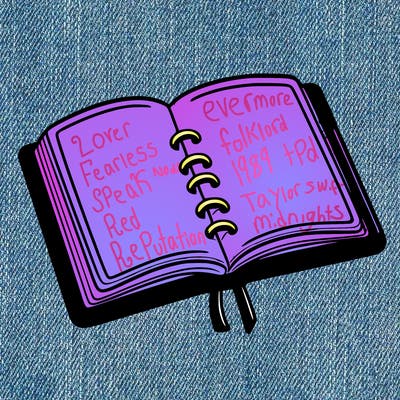 Lover
Fearless
Speak Now
Red
RePutation
evermore
folklord
1989 tPd
Taylor swift
midnights